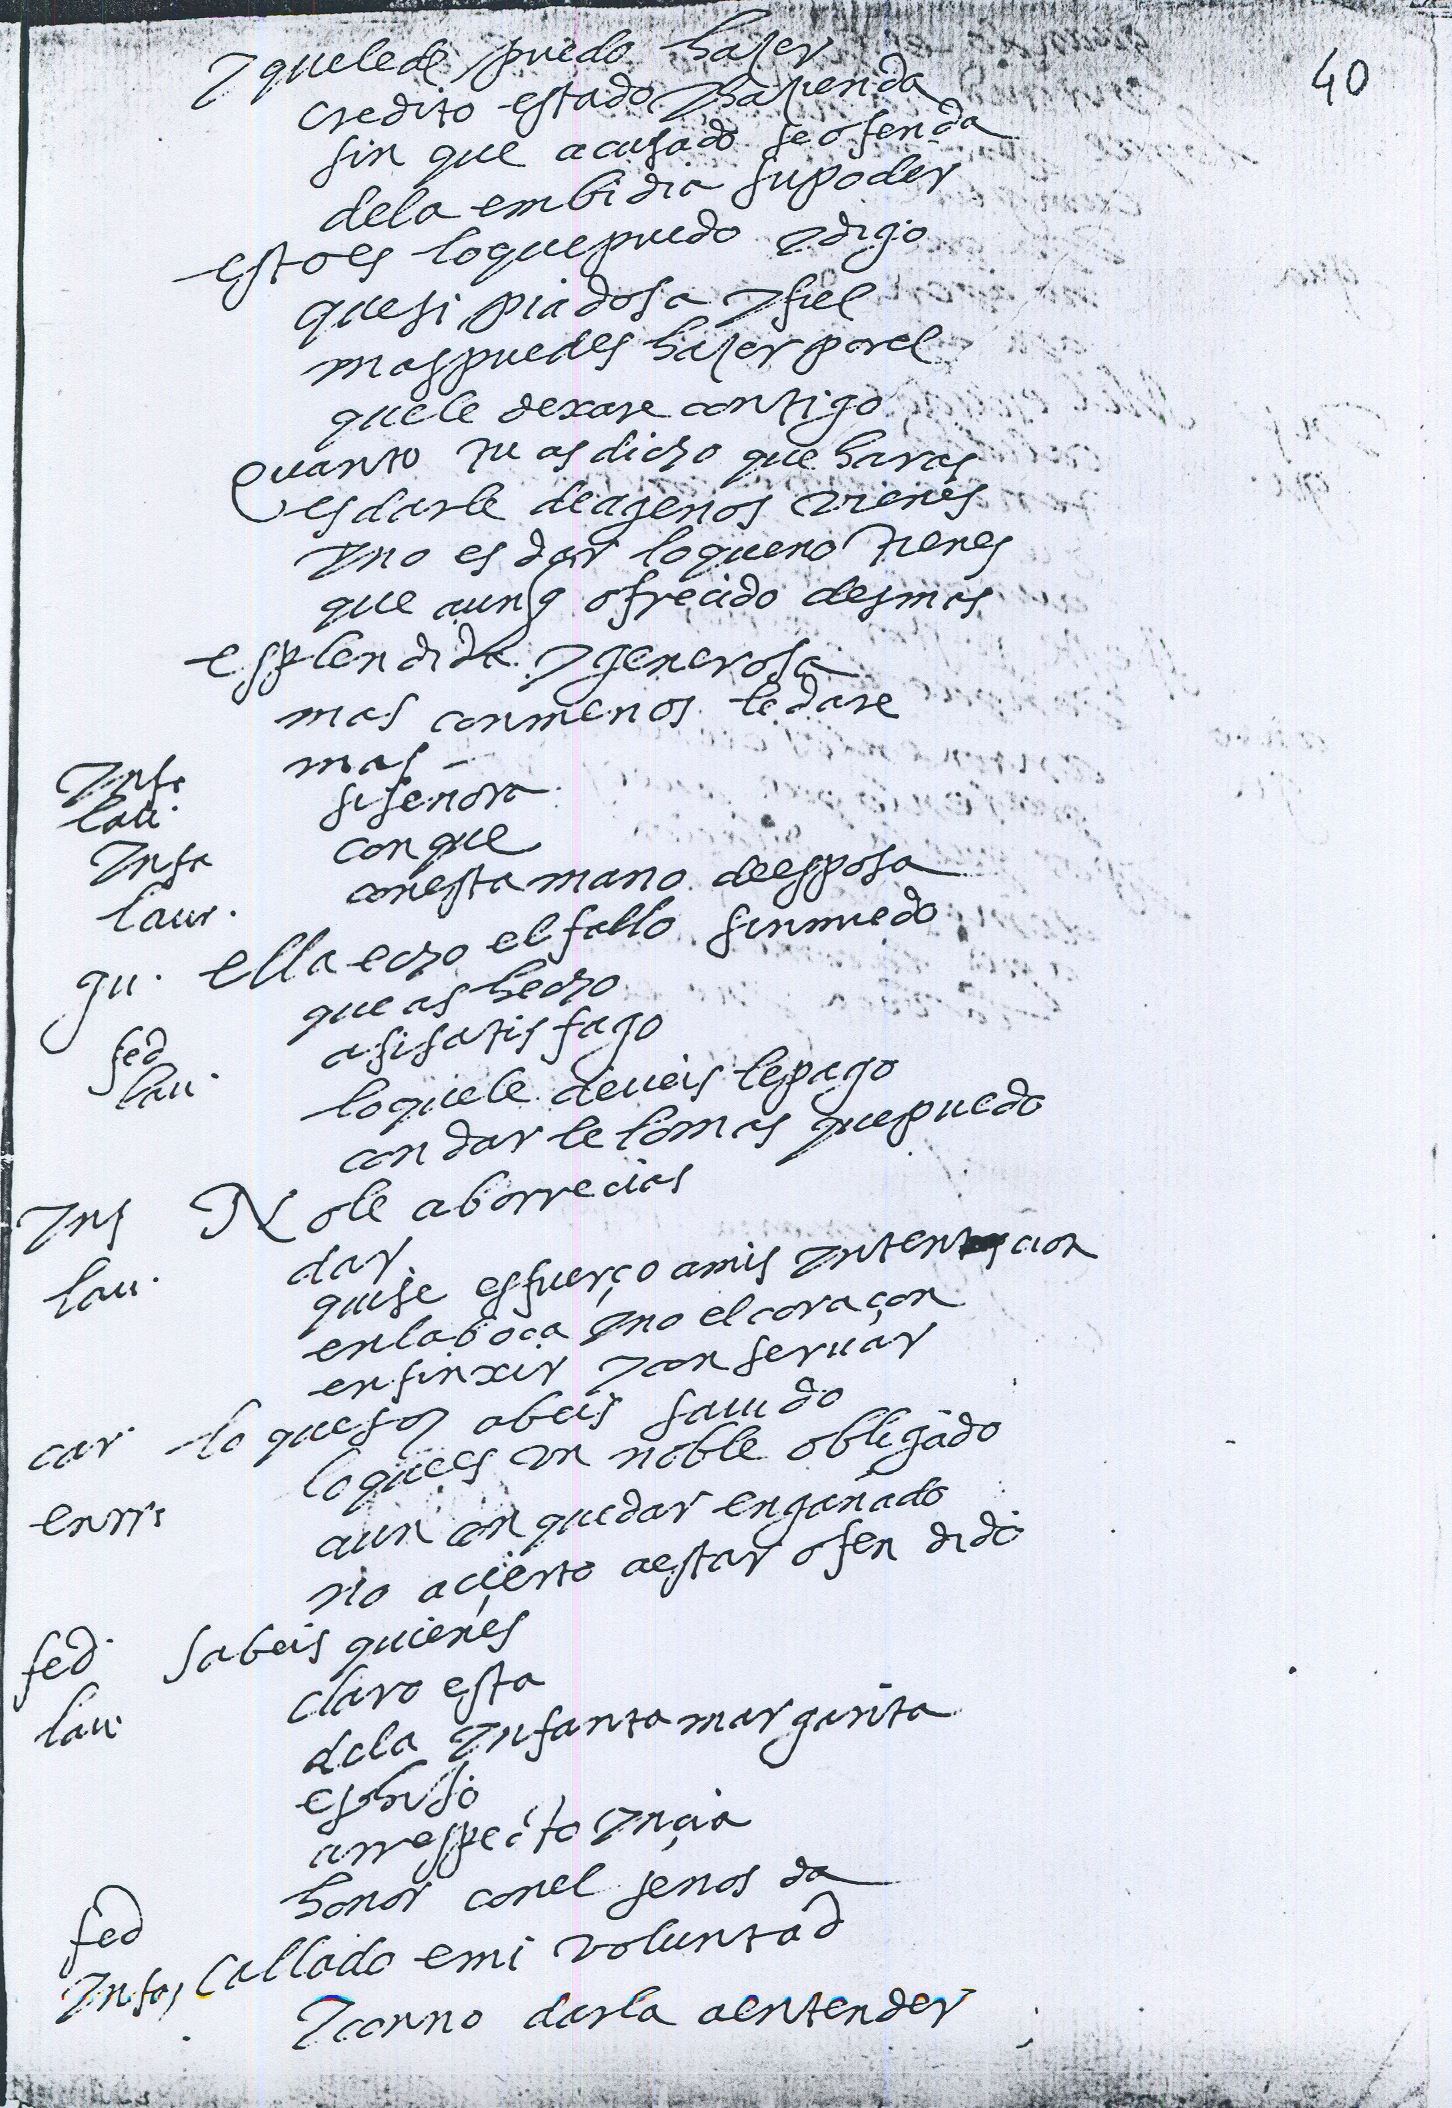 40
y quele de puedo hazer
credito estado y hazienda
sin que acusado se ofenda
dela embidia su poder
esto es loque puedo y digo
que si piadosa y fiel
mas puedes hazer por el
que le dexare contigo
Quanto tu as dicho que haras
es darle de agenos vienes
y no es dar loqueno tienes
que aunq ofrecido des mas
esplendida y generosa
mas con menos le dare
Infa mas
lau. si señora
Infa con que
laur. con esta mano de esposa
gu. ella echo el fallo sin miedo
fed que as hecho
lau. asi satisfago
loque le deueis le pago
con darle lo mas que puedo
Inf No le aborrecias
lau. dar
quise esfuerço a mis Intencion
en la boca y no el coraçon
en finxir y conseruar
car lo que soy abeis sauido
enrri lo que es vn noble obligado
aun con quedar engañado
no açierto a estar ofendido
fed. Sabeis quien es
lau. claro esta
dela Infanta margarita
es hijo
a respecto
fed honor con el se nos da
Infa callado e mi voluntad
y con no darla a entender